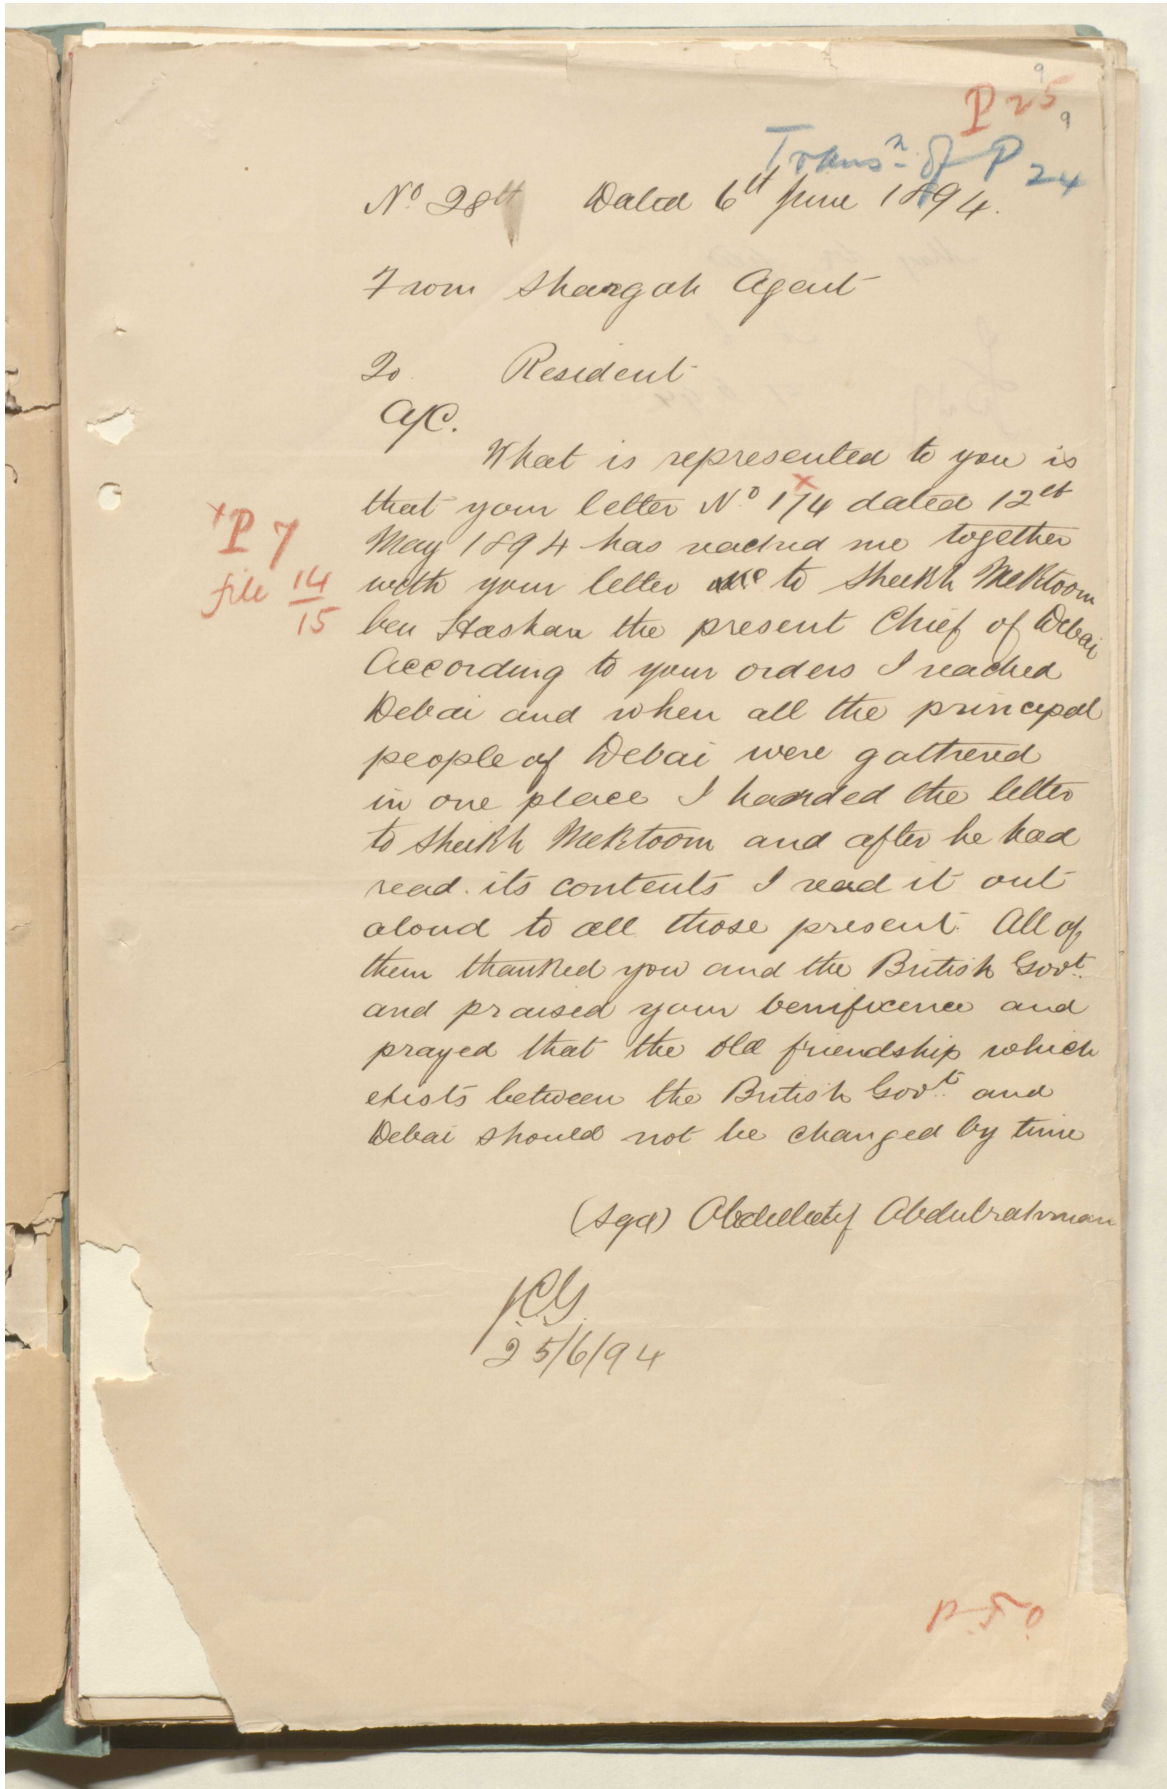 9
P 25
9
Transn. of P 24
No 28th Dated 6th June 1894.
From Shargah Agent
To Resident
A/C.
What is represented to you is
that your letter No 174 dated 12th
× P 7
May 1894 has reached me together
file 14/15
with your letter to Sheikh Mektoom
ben Hashar the present Chief of Debai
According to your orders I reached
Debai and when all the principal
people of Debai were gathered
in one place I handed the letter
to Sheikh Mektoom and after he had
read its contents I read it out
aloud to all those present. All of
them thanked you and the British Govt.
and praised your benificence and
prayed that the old friendship which
exists between the British Govt. and
Debai should not be changed by time
(sgd) Abdullatif Abdulrahman
J.C.G.
25/6/94